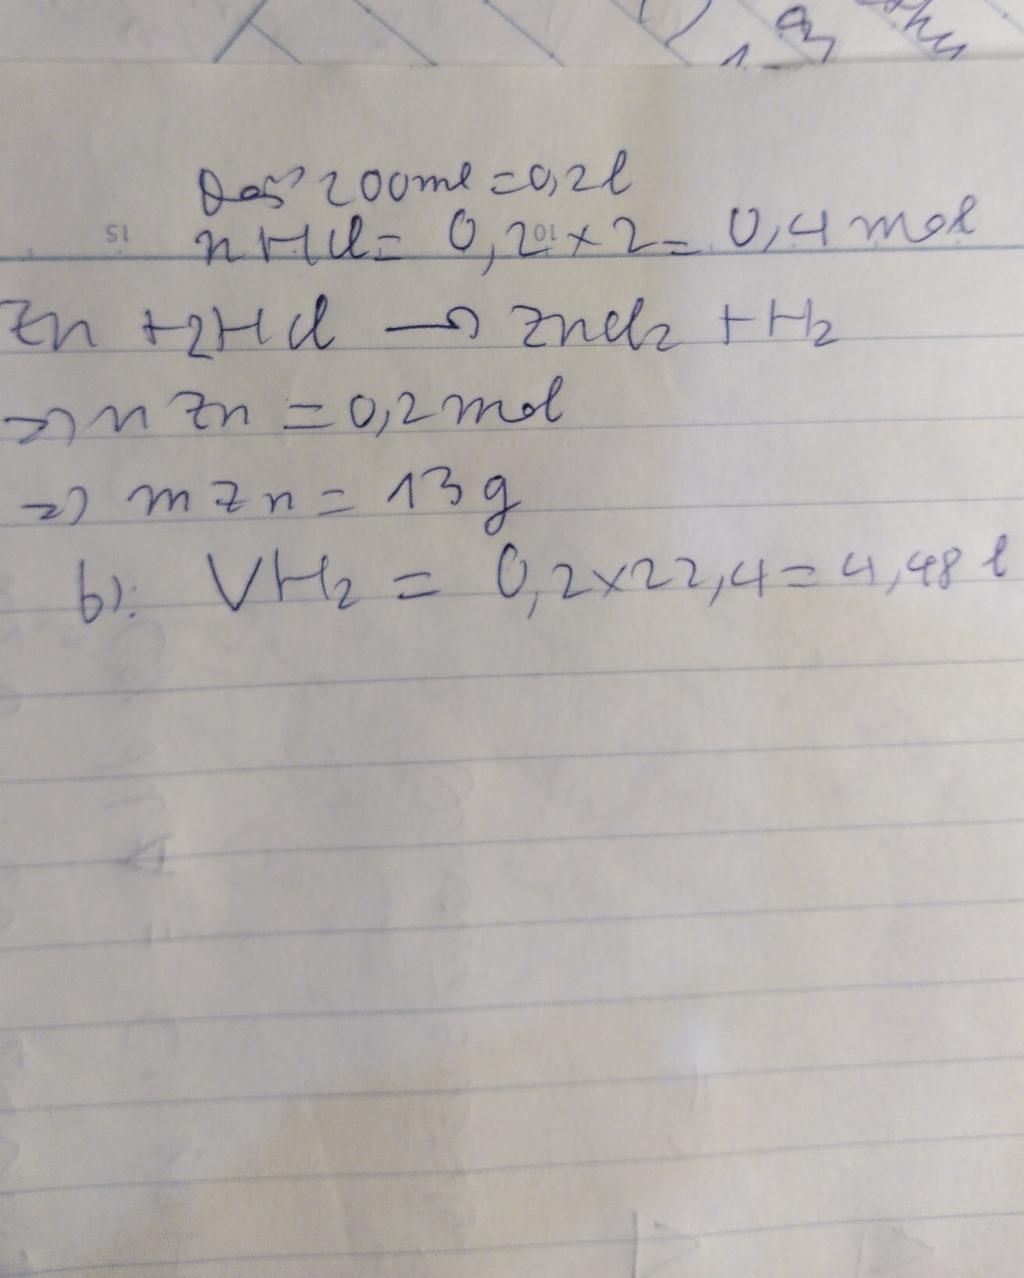 200ml = 0,2l
nHCl = 0,2 x 2 = 0,4 mol
Zn + 2HCl → ZnCl2 + H2
=> n Zn = 0,2 mol
=> m Zn = 13 g
b): VH2 = 0,2 x 22,4 = 4,48 l